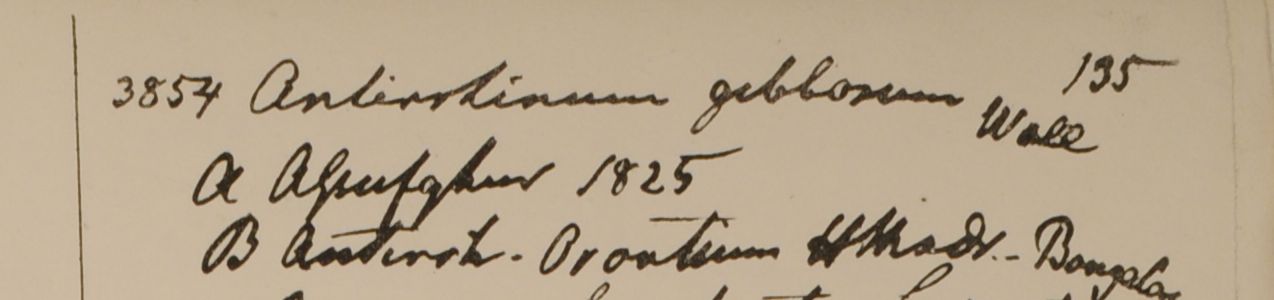 3854 Antirrhinum gibbosum Wall 135
A Azufghur 1825
B Antirrh. Orontium HMadr. - Bangalor